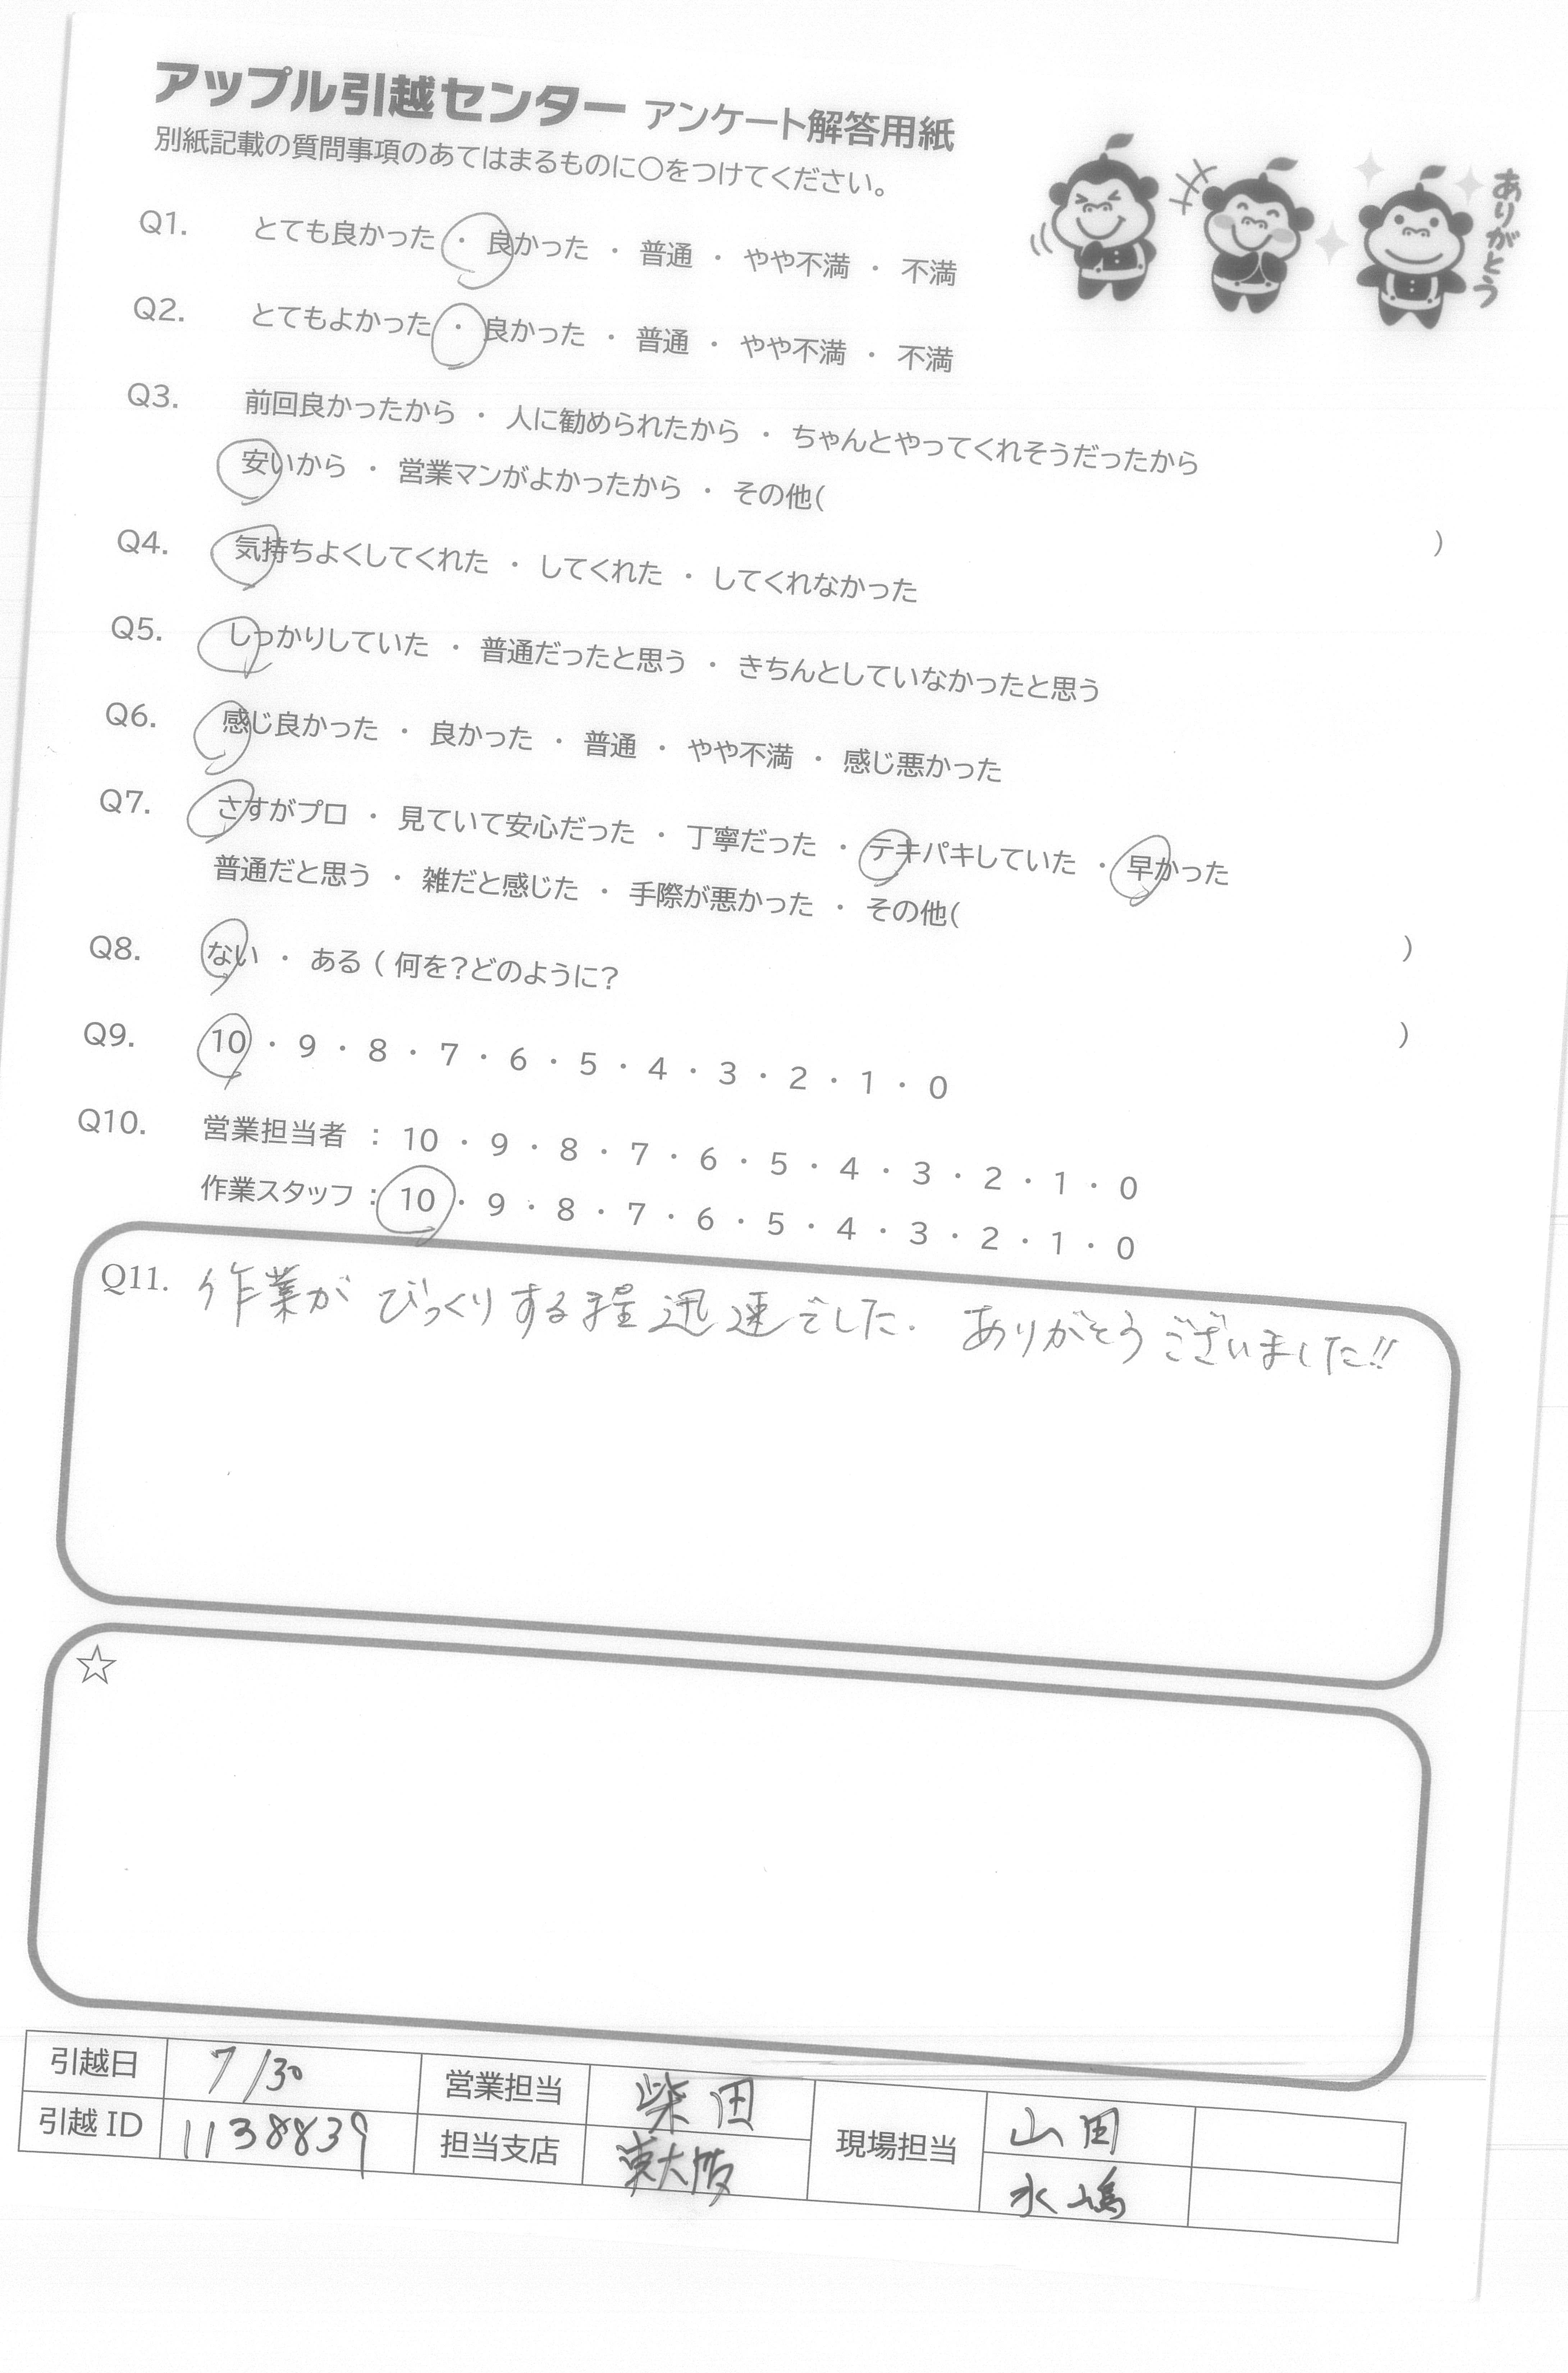 アップル引越センター アンケート解答用紙
別紙記載の質問事項のあてはまるものに○をつけてください。
ありがとう
Q1. とても良かった ・ 良かった ・ 普通 ・ やや不満 ・ 不満
Q2. とてもよかった ・ 良かった ・ 普通 ・ やや不満 ・ 不満
Q3. 前回良かったから ・ 人に勧められたから ・ ちゃんとやってくれそうだったから
安いから ・ 営業マンがよかったから ・ その他( )
Q4. 気持ちよくしてくれた ・ してくれた ・ してくれなかった
Q5. しっかりしていた ・ 普通だったと思う ・ きちんとしていなかったと思う
Q6. 感じ良かった ・ 良かった ・ 普通 ・ やや不満 ・ 感じ悪かった
Q7. さすがプロ ・ 見ていて安心だった ・ 丁寧だった ・ テキパキしていた ・ 早かった
普通だと思う ・ 雑だと感じた ・ 手際が悪かった ・ その他( )
Q8. ない ・ ある ( 何を?どのように? )
Q9. 10 ・ 9 ・ 8 ・ 7 ・ 6 ・ 5 ・ 4 ・ 3 ・ 2 ・ 1 ・ 0
Q10. 営業担当者 : 10 ・ 9 ・ 8 ・ 7 ・ 6 ・ 5 ・ 4 ・ 3 ・ 2 ・ 1 ・ 0
作業スタッフ : 10 ・ 9 ・ 8 ・ 7 ・ 6 ・ 5 ・ 4 ・ 3 ・ 2 ・ 1 ・ 0
Q11. 作業が びっくりする程 迅速でした. ありがとうございました!!
☆
引越日 7/30 営業担当 柴田 現場担当 山田
引越ID 1138839 担当支店 東大阪 永嶋